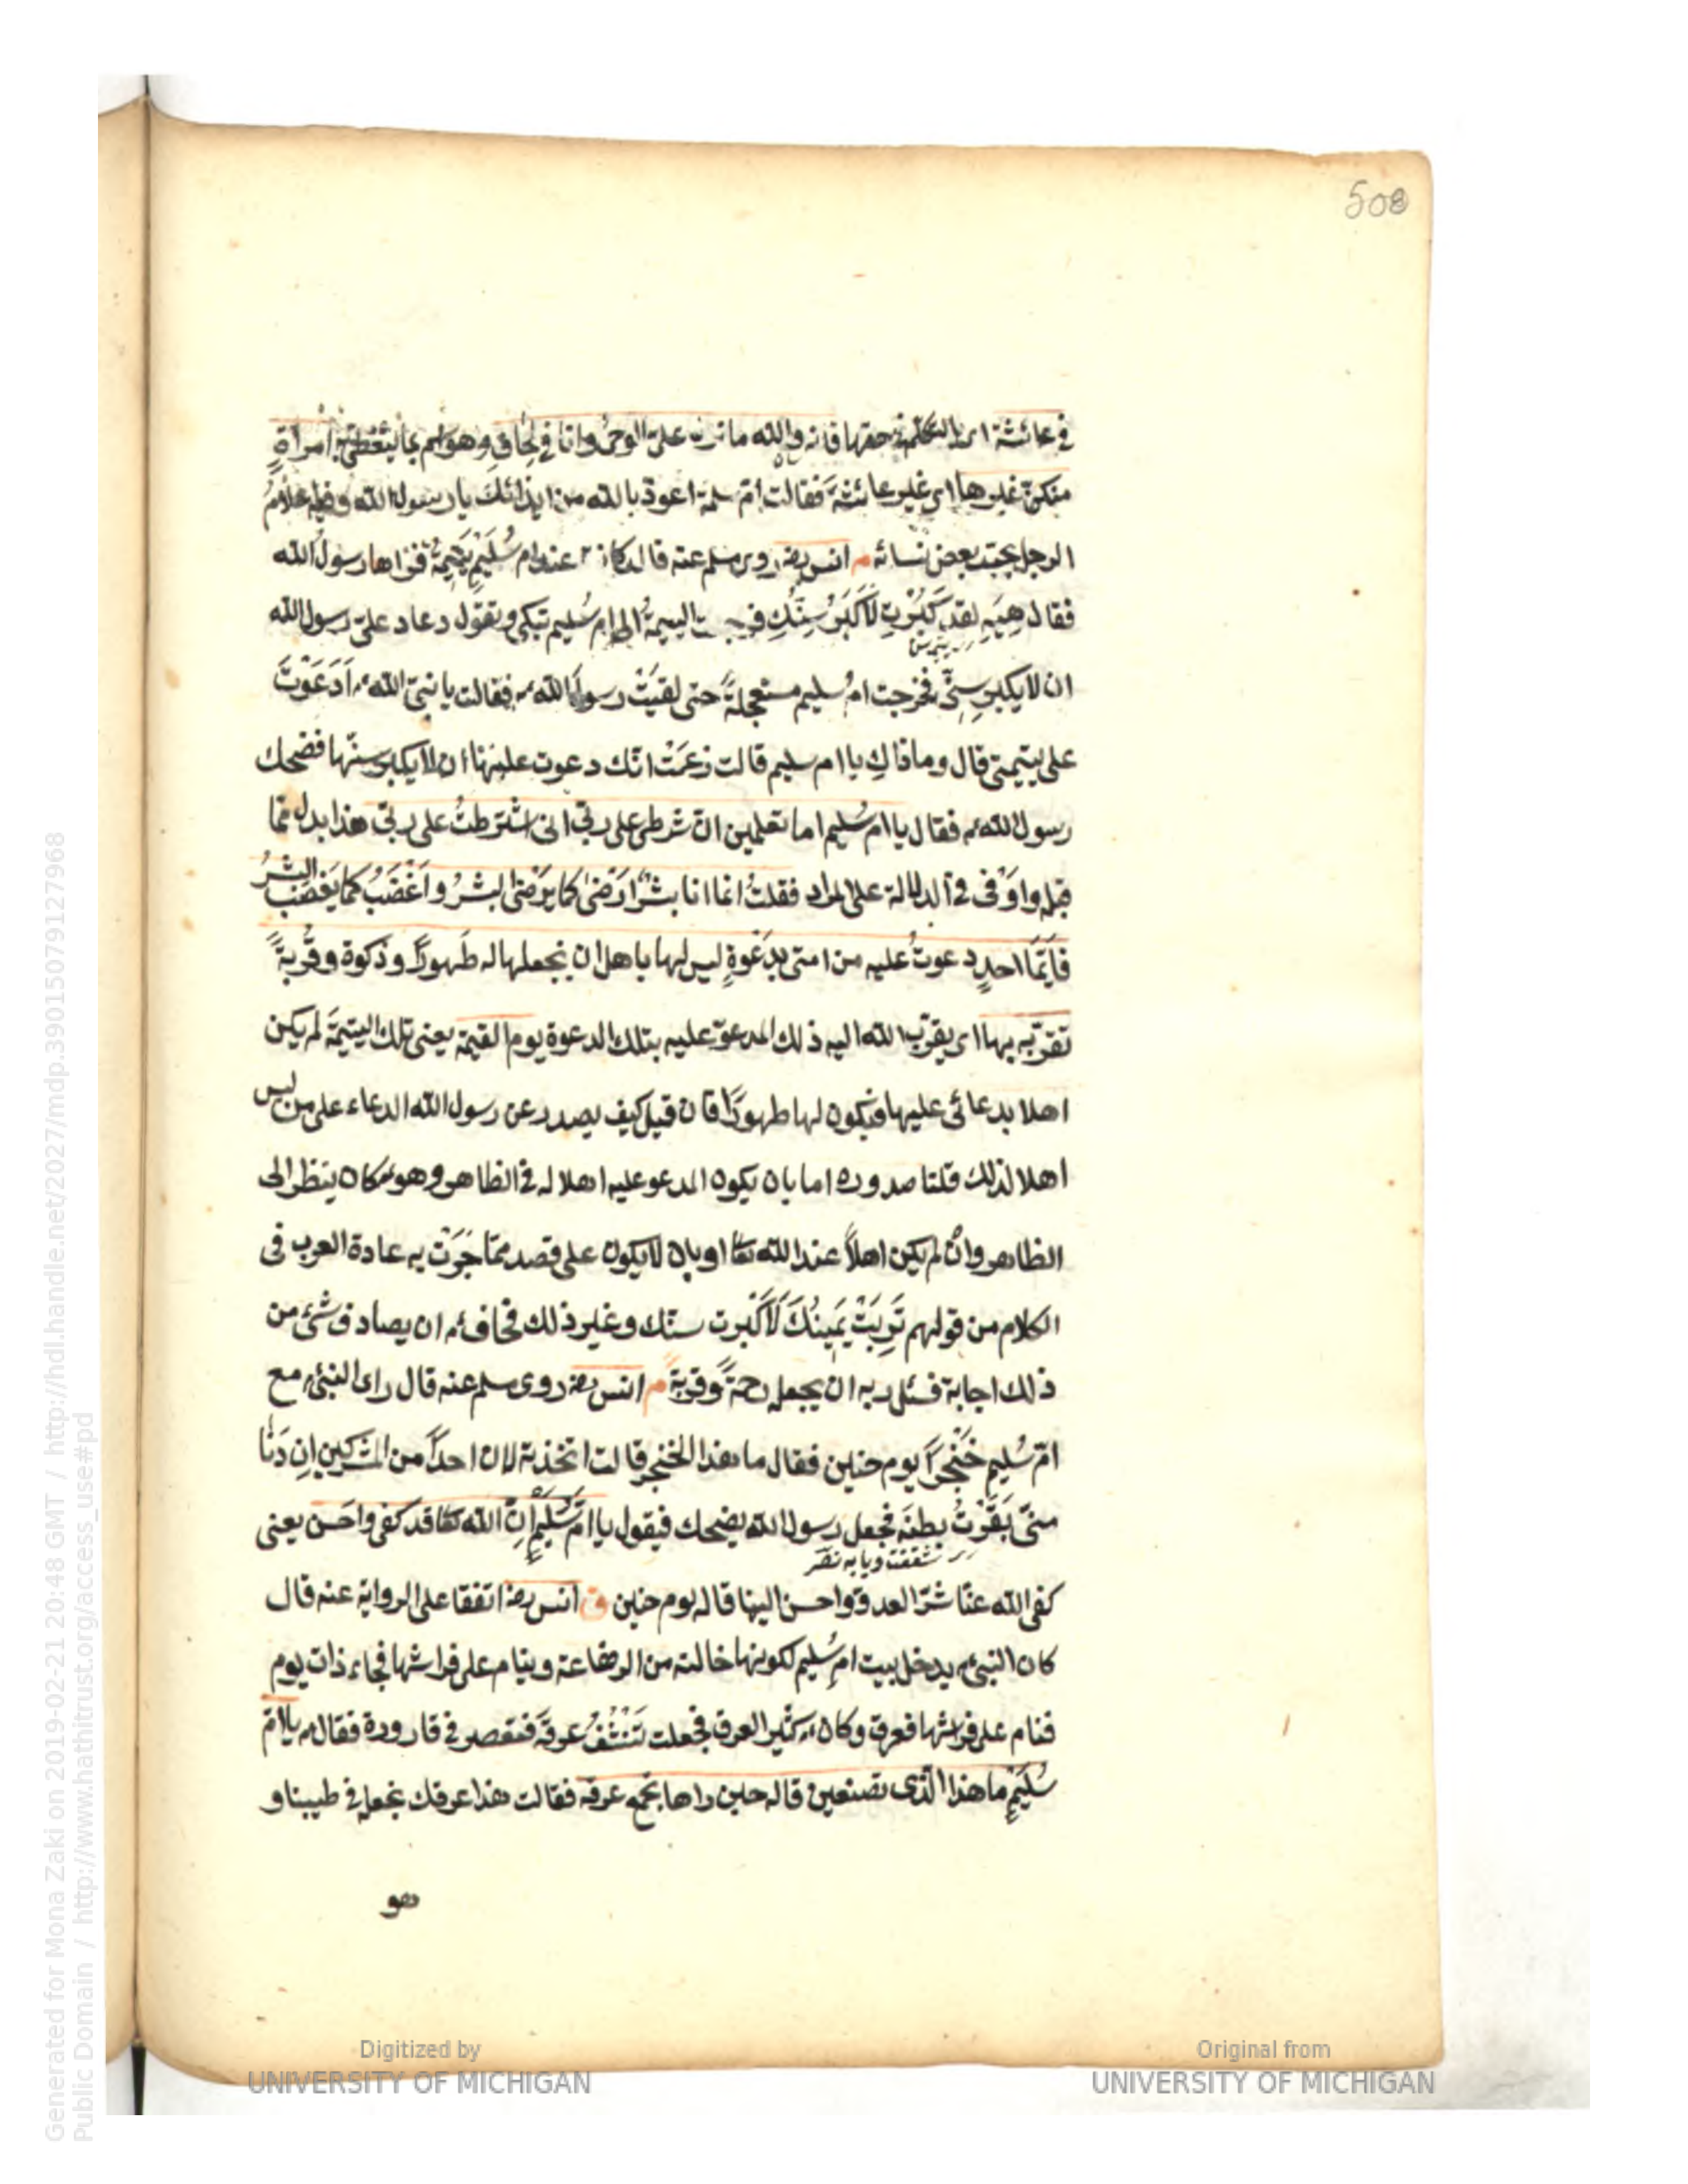 508
في عائشة اى بالتكلم في حقها فانه والله ما نزل على الوحى وانا في لحاف وهو اسم ما يتغطى به امرأةٍ
منكنّ غيرها اى غير عائشة فقالت ام سلمة اعوذ بالله من ايذائك يا رسول الله وفيه علامُ
الرجل بمحبة بعض نسائه م انس رضـ روى مسلم عنه قال كانت عند ام سُلَيمٍ يَتِيمةٌ فراها رسول الله
فقال هِيَهِ لقد كَبُرْتِ لَاكَبُرَ سِنُّكِ فرجعت اليتيمةُ الى ام سُليم تبكى وتقول دعا علىّ رسول الله
ان لا يكبر سِنّى فخرجت ام سُليم مستعجلةً حتى لقيَتْ رسول الله م فقالت يا نبىّ الله م اَدَعَوْتَ
على يتيمتى قال وما ذاكِ يا ام سليم قالت زعمَتْ انّك دعوت عليها ان لا يكبر سنّها فضحك
رسول الله م فقال يا ام سُليم اما تعلمين انّ شرطى على ربّى انى اشترطتُ على ربّى هذا بدل مما
قبله واَوْفى في الدلالة على المراد فقلتُ انما انا بشرٌ ارَضىٰ كما يَرضَى البشرُ واَغْضَبُ كما يَغضَبُ البشرُ
فاَيّمَا احدٍ دعوتُ عليه من امتى بِدَعْوةٍ ليس لها باهل ان يجعلها له طَهورًا وزكوة وقُربةً
تقرّبه بها اى يقرّب الله اليه ذلك المدعوّ عليه بتلك الدعوة يوم القيمة يعنى تلك اليتيمةُ لم يكن
اهلا بدعائى عليها فيكون لها طهورًا فان قيل كيف يصدر عن رسول الله الدعاء على من ليس
اهلا لذلك قلنا صدوره اما بان يكون المدعو عليه اهلا له في الظاهر وهو م كان ينظر الى
الظاهر وان لم يكن اهلاً عند الله تعا او بان لا يكون على قصد مما جَرَتْ به عادة العرب في
الكلام من قولهم تَرِبَتْ يَمِينُكَ لَاكَبُرت سنك وغير ذلك فخاف م ان يصادف شئ من
ذلك اجابة فسئل ربه ان يجعله رحمةً وقربةً م انس رضـ روى مسلم عنه قال راى النبى م مع
امّ سُليم خَنْجرًا يوم حنين فقال ما هذا الخنجر قالت اتخذته لان احدًا من المشركين اِن دَنا
منّى بَقَرْتُ بطنَه فجعل رسول الله يضحك فيقول يا امّ سُلَيمٍ اِنّ الله تعا قد كفى واحَسن يعنى
كفى الله عنّا شرّ العدوّ واحسن الينا قاله يوم حنين ق انس رضـ اتفقا على الرواية عنه قال
كان النبى م يدخل بيت ام سُليم لكونها خالته من الرضاعة وينام على فراشها فجاء ذات يوم
فنام على فراشها فعرق وكان م كثير العرق فجعلت تَنْشُفُ عرقَه فتعصر في قارورة فقال م يا امّ
سُلَيمٍ ما هذا الّذى تصنعين قاله حين راها تجمع عرقه فقالت هذا عرقك نجعله في طيبنا و
وهو
Digitized by
UNIVERSITY OF MICHIGAN
Original from
UNIVERSITY OF MICHIGAN
Generated for Mona Zaki on 2019-02-21 20:48 GMT / http://hdl.handle.net/2027/mdp.39015079127968
Public Domain / http://www.hathitrust.org/access_use#pd